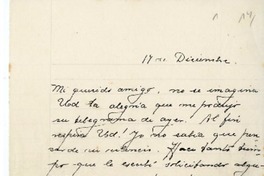 17 de Diciembre
Mi querido amigo, no se imagina
Ud la alegría que me produjo
su telegrama de ayer! Al fin
respira Ud! Yo no sabía que pen
sar de su silencio. Hace tanto tiem
po que le escribí solicitando algu